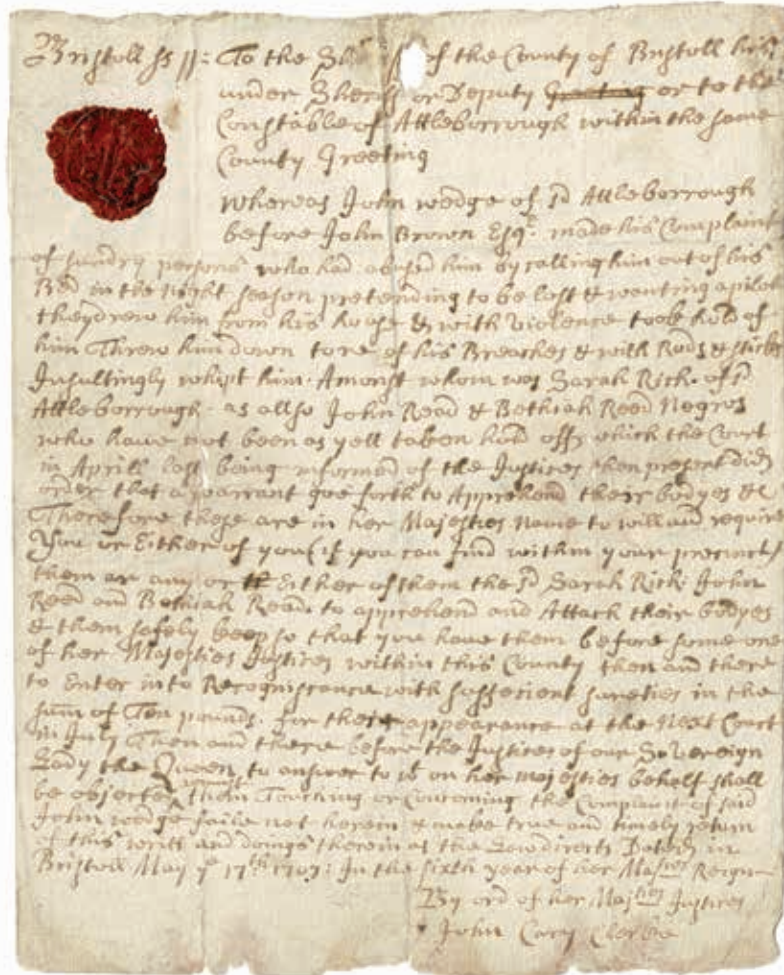 Bristoll ss To the She of the County of Bristoll his
under Sheriff or Deputy Greeting or to the
Constable of Attleborrough within the same
County Greeting
whereas John wedge of sd Attleborrough
before John Brown Esqr. made his Complaint
of sundry persons who had abused him by calling him out of his
Bed in the night season pretending to be lost & wanting a pilot
they drew him from his house & with violence took hold of
him Threw him down tore of his Breaches & with Rods & sticks
Insultingly whipt him. Amongst whom was Sarah Rick. of sd
Attleborrough. as allso John Read & Bethiah Reed Negros
who have not been as yett taken hold off, which the Court
in Aprill last being informed of the Justices then present did
order that a warrant goe forth to Apprehend their bodyes &c
Therefore these are in her Majesties name to will and require
You or Either of you (if you can find within your precincts)
them or any or Either of them the sd Sarah Rick John
Reed and Bethiah Read. to apprehend and Attach their bodyes
& them safely keep so that you have them before some one
of her Majesties Justices within this County then and there
to Enter into Recogniscance with soffecient sureties in the
sum of Ten pounds. for their appearance at the Next Court
in July Then and there before the Justices of our Sovereign
Lady the Queen, to answer to wt on her majesties behalf shall
be objected them Touching or Concerning the Complaint of said
John wedge faile not herein & make true and timely return
of this writt and doings therein as the Law directs Dated in
Bristoll May ye 17th 1707: In the sixth year of her Majties Reign
By ord of her Majties Justices
John Cary Clerke